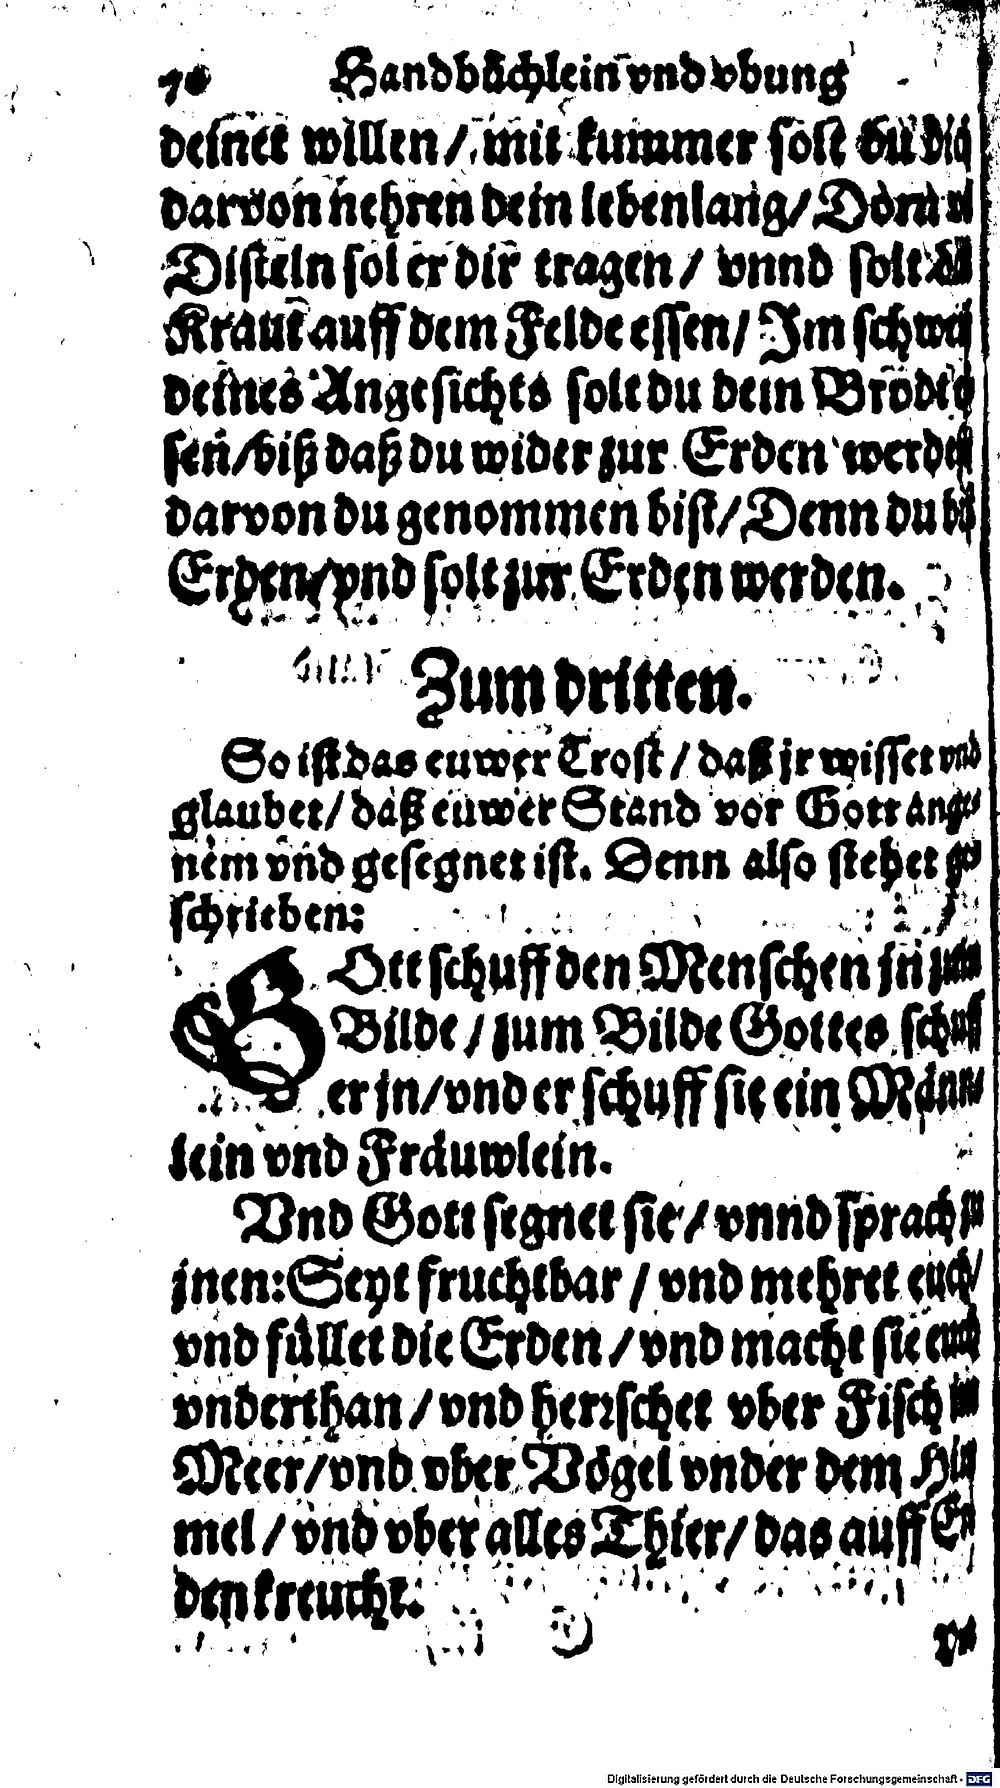 Handbüchlein vnd vbung
deinet willen / mit kummer solt du dich
darvon nehren dein lebenlang / Dorn
Disteln sol er dir tragen / vnnd solt
Kraut auff dem Felde essen / Im
deines Angesichts solt du dein Brodt
sen / biß daß du wider zur Erden werdest
darvon du genommen bist / Denn du
Erden / vnd solt zur Erden werden.
Zum dritten.
So ist das euwer Trost / daß jr wisset vnd
glaubet / daß euwer Stand vor Gott ange-
nem vnd gesegnet ist. Denn also stehet
schrieben:
GOtt schuff den Menschen jn zum
Bilde / zum Bilde Gottes schuff
er jn / vnd er schuff sie ein Männ-
lein vnd Fräuwlein.
Vnd Gott segnet sie / vnnd sprach zu
jnen: Seyt fruchtbar / vnd mehret euch /
vnd füllet die Erden / vnd macht sie euch
vnderthan / vnd herrschet vber Fisch im
Meer / vnd vber Vögel vnder dem
mel / vnd vber alles Thier / das auff
den kreucht.
Digitalisierung gefördert durch die Deutsche Forschungsgemeinschaft - DFG